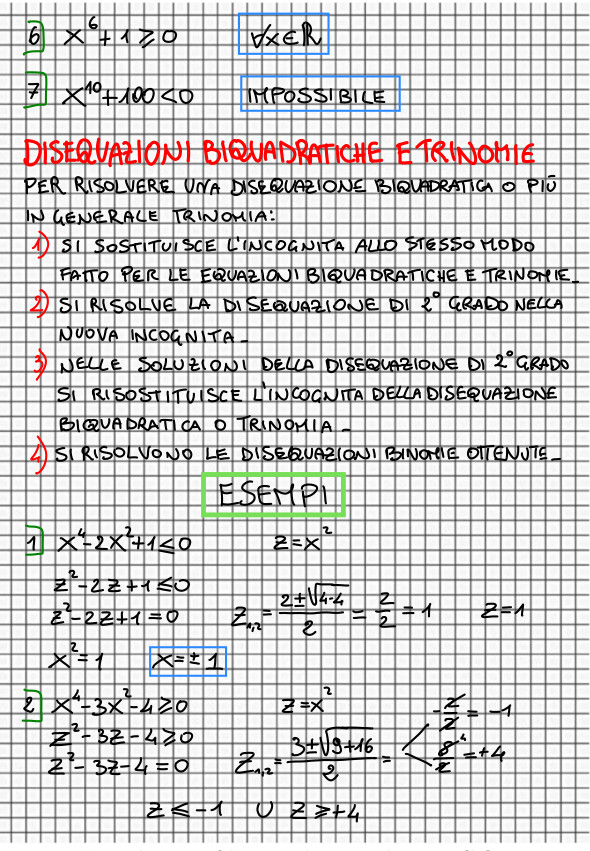 6] x⁶+1⩾0 ∀x∈ℝ
7] x¹⁰+100<0 IMPOSSIBILE
DISEQUAZIONI BIQUADRATICHE E TRINOMIE
PER RISOLVERE UNA DISEQUAZIONE BIQUADRATICA O PIÙ
IN GENERALE TRINOMIA:
1) SI SOSTITUISCE L'INCOGNITA ALLO STESSO MODO
FATTO PER LE EQUAZIONI BIQUADRATICHE E TRINOMIE_
2) SI RISOLVE LA DISEQUAZIONE DI 2° GRADO NELLA
NUOVA INCOGNITA_
3) NELLE SOLUZIONI DELLA DISEQUAZIONE DI 2° GRADO
SI RISOSTITUISCE L'INCOGNITA DELLA DISEQUAZIONE
BIQUADRATICA O TRINOMIA_
4) SI RISOLVONO LE DISEQUAZIONI BINOMIE OTTENUTE_
ESEMPI
1] x⁴-2x²+1⩽0 z=x²
z²-2z+1⩽0
z²-2z+1=0 z₁,₂= (2±√(4-4))/2 = 2/2 = 1 z=1
x²=1 x=±1
2] x⁴-3x²-4⩾0 z=x² -2/2=-1
z²-3z-4⩾0
z²-3z-4=0 z₁,₂= (3±√(9+16))/2 = 8⁴/2=+4
z⩽-1 ∪ z⩾+4